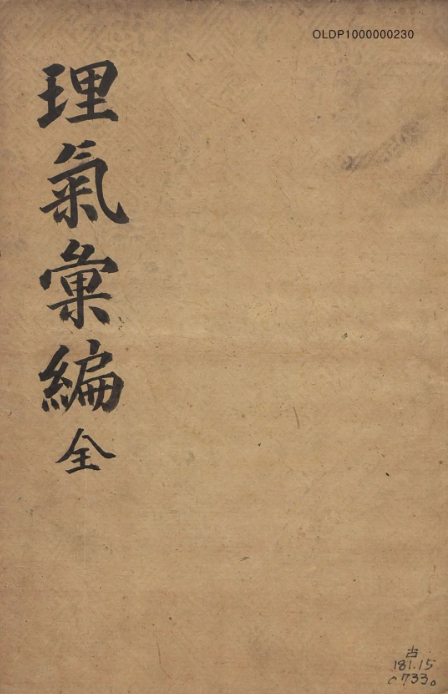 OLDP1000000230
理氣彙編 全
古
181.15
c733o